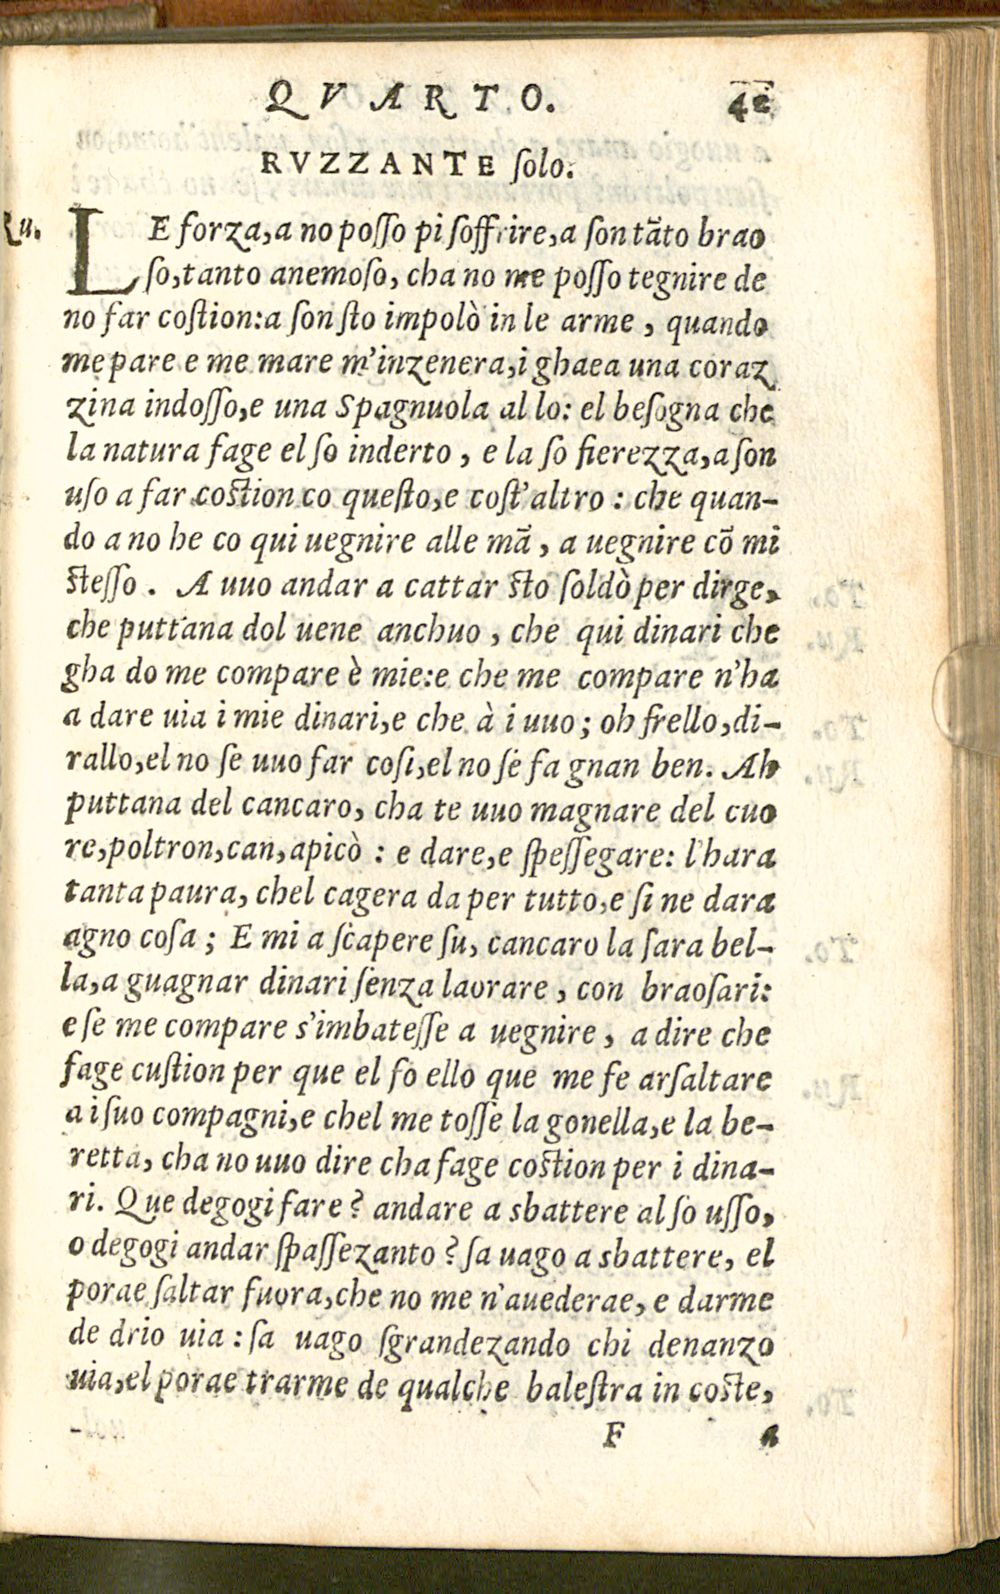 QVARTO. 4e
RVZZANTE ſolo.
Ru. LE forza,a no poſſo pi ſoffrire,a ſon tãto brao
ſo,tanto anemoſo, cha no me poſſo tegnire de
no far coſtion:a ſon ſto impolò in le arme , quando
me pare e me mare m'inzenera,i ghaea una coraz
zina indoſſo,e una Spagnuola al lo: el beſogna che
la natura fage el ſo inderto , e la ſo fierezza,a ſon
uſo a far coſtion co queſto,e coſt'altro : che quan-
do a no he co qui uegnire alle mã , a uegnire cõ mi
ſteſſo . A uuo andar a cattar ſto ſoldò per dirge,
che puttana dol uene anchuo , che qui dinari che
gha do me compare è mie:e che me compare n'ha
a dare uia i mie dinari,e che à i uuo; oh frello,di-
rallo,el no ſe uuo far coſi,el no ſe fa gnan ben. Ah
puttana del cancaro, cha te uuo magnare del cuo
re,poltron,can,apicò : e dare,e ſpeſſegare: l'hara
tanta paura, chel cagera da per tutto,e ſi ne dara
agno coſa ; E mi a ſcapere ſu, cancaro la ſara bel-
la,a guagnar dinari ſenza laorare , con braoſari:
e ſe me compare s'imbateſſe a uegnire , a dire che
fage cuſtion per que el fo ello que me fe arſaltare
a i ſuo compagni,e chel me toſſe la gonella,e la be-
retta, cha no uuo dire cha fage coſtion per i dina-
ri. Que degogi fare? andare a sbattere al ſo uſſo,
o degogi andar ſpaſſezanto ? ſa uago a sbattere, el
porae ſaltar fuora,che no me n'auederae, e darme
de drio uia : ſa uago ſgrandezando chi denanzo
uia,el porae trarme de qualche baleſtra in coſte,
F a